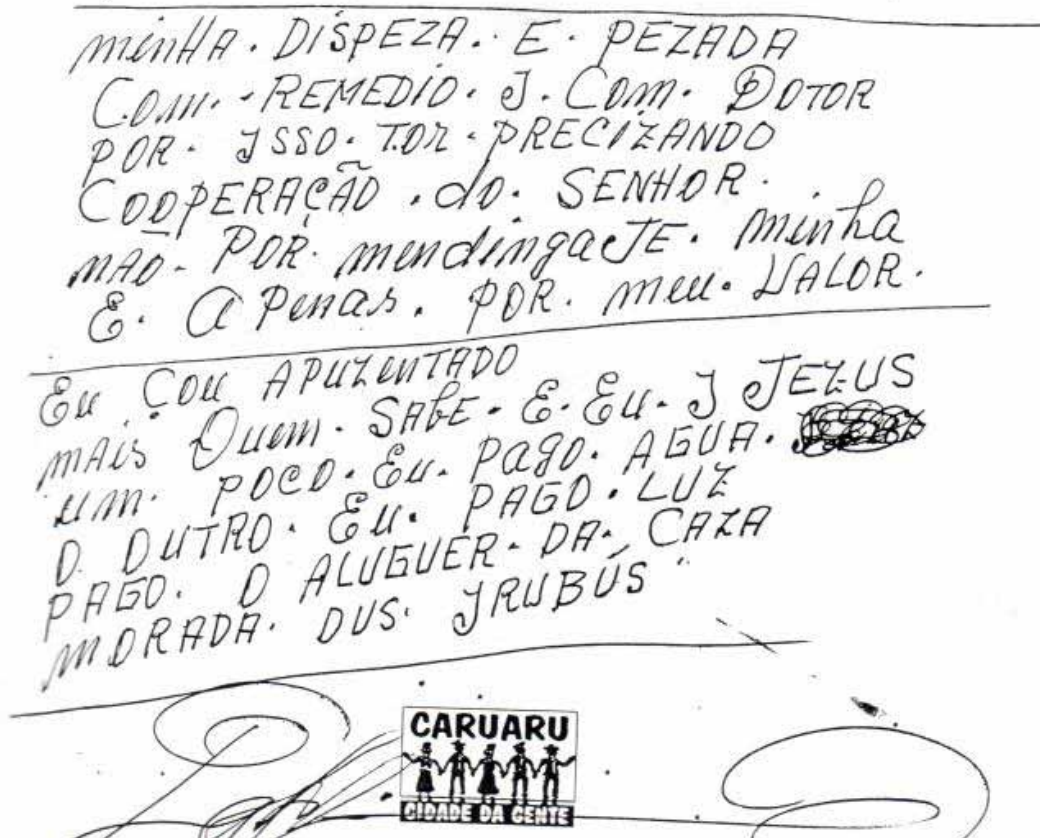 minHA. DISPEZA. E. PEZADA
COM. REMEDIO. J. COM. DOTOR
POR. JSSO. TOR. PRECIZANDO
COOPERAÇÃO. dO. SENHOR.
NAO. POR. mendingaJE. minha
E. APenas. POR. meu. VALOR.
Eu ÇOU APUZENTADO
MAIS Quem. SABE. E. Eu. J JEZUS
UM. POCO. Eu. PAgO. AGUA.
O OUTRO. Eu. PAGO. LUZ
PAGO. O ALUGUER. DA. CAZA
MORADA. DUS. JRUBÚS"
CARUARU
CIDADE DA GENTE